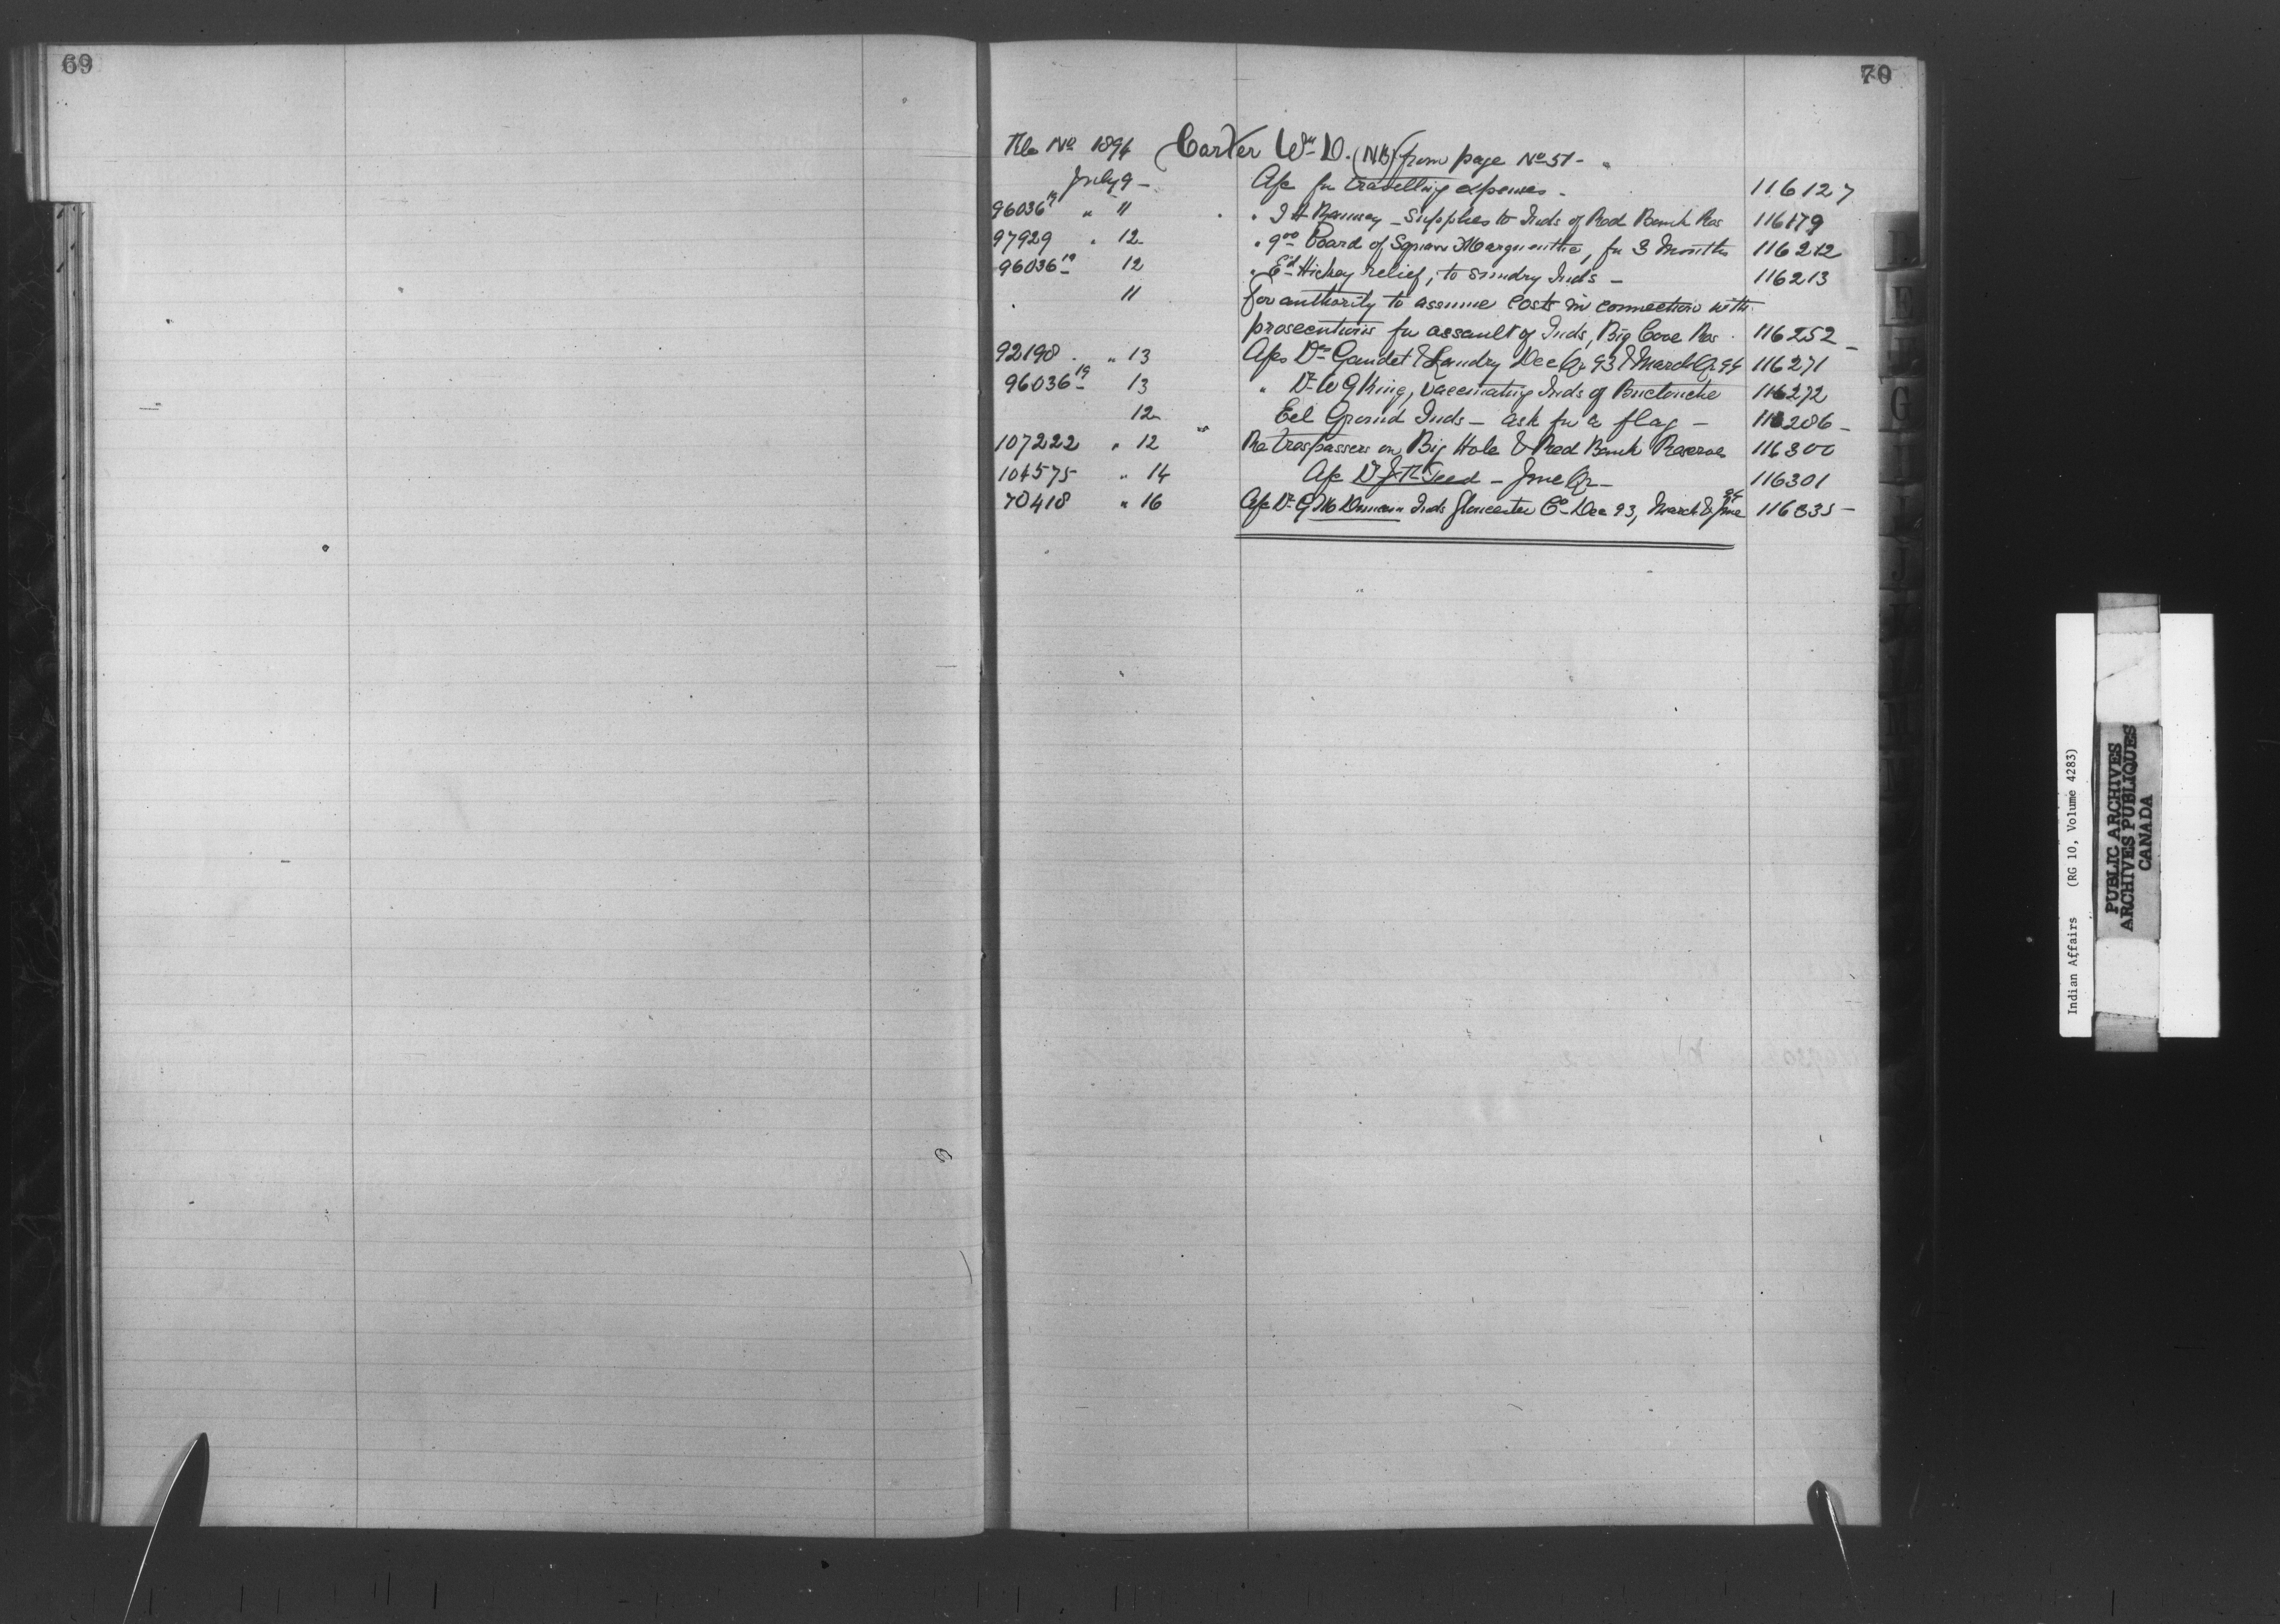 69
70
File No 1894 Carter Wm D. (NB) from page No 51 -
July 9 - A/c for travelling expenses - 116127
96036 19 " 11 " J H Ramsay - supplies to Inds of Red Bank Res 116179
97929 " 12 " 9 00 Board of Squaw Marguerite, for 3 Months 116212
96036 19 12 " Ed Hickey relief, to sundry Inds - 116213
11 for authority to assume costs in connection with
prosecutions for assault of Inds, Big Cove Res - 116252 -
92198 " 13 A/cs Drs Gaudet & Landry Dec Qr 93 & March Qr 94 116271
96036 19 13 " Dr W G King, vaccinating Inds of Buctouche 116272
12 Eel Ground Inds - ask for a flag - 116286 -
107222 " 12 Re trespassers on Big Hole & Red Bank Reserves 116300
104575 " 14 A/c Dr Teed - June Qr - 116301
70418 " 16 A/c Dr G Duncan Inds Gloucester Co - Dec 93, March & June 94 116335 -
G
J
Indian Affairs (RG 10, Volume 4283)
PUBLIC ARCHIVES
ARCHIVES PUBLIQUES
CANADA